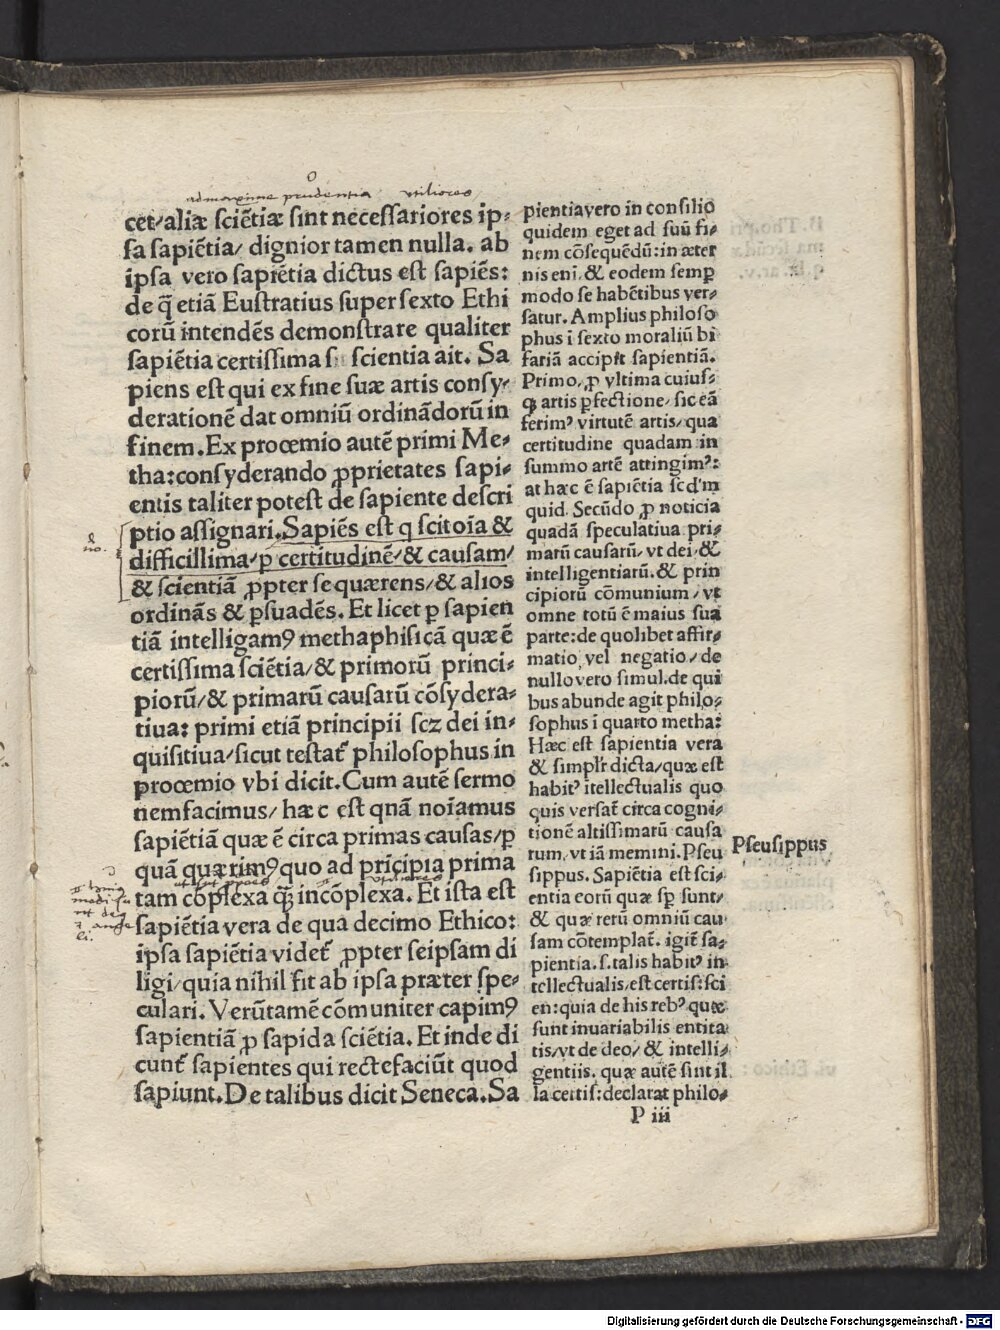 ad maxime prudentia utiliores
cet/aliæ sciẽtiæ sint necessariores ip⸗
sa sapiẽtia/ dignior tamen nulla. ab
ipsa vero sapiẽtia dictus est sapiẽs:
de q̃ etiã Eustratius super sexto Ethi
corũ intendẽs demonstrare qualiter
sapiẽtia certissima scientia ait. Sa
piens est qui ex fine suæ artis consy⸗
derationẽ dat omniũ ordinãdorũ in
finem. Ex proœmio autẽ primi Me⸗
tha: consyderando ꝓprietates sapi⸗
entis taliter potest de sapiente descri
ptio assignari. Sapiẽs est q scit oĩa &
difficillima/ꝑ certitudinẽ/& causam/
& scientiã ꝓpter se quærens/& alios
ordinãs & ꝑsuadẽs. Et licet ꝑ sapien
tiã intelligamꝰ methaphisicã quæ ẽ
certissima sciẽtia/& primorũ princi⸗
piorũ/& primarũ causarũ cõsydera⸗
tiua: primi etiã principii scz dei in⸗
quisitiua/sicut testat᷑ philosophus in
proœmio vbi dicit. Cum autẽ sermo
nem facimus/ hæc est qnã noĩamus
sapiẽtiã quæ ẽ circa primas causas/ꝑ
quã quærimꝰ quo ad prĩcipia prima
tam cõplexa q̃ꝫ incõplexa. Et ista est
sapiẽtia vera de qua decimo Ethico:
ipsa sapiẽtia videt᷑ ꝓpter seipsam di
ligi/quia nihil fit ab ipsa præter spe⸗
culari. Verũtamẽ cõmuniter capimꝰ
sapientiã ꝓ sapida sciẽtia. Et inde di
cunt᷑ sapientes qui recte faciũt quod
sapiunt. De talibus dicit Seneca. Sa
pientia vero in consilio
quidem eget ad suũ fi⸗
nem cõsequẽdũ: in æter
nis eni. & eodem semꝑ
modo se habẽtibus ver⸗
satur. Amplius philoso
phus ĩ sexto moraliũ bi
fariã accipit sapientiã.
Primo, ꝓ vltima cuius⸗
qꝫ artis ꝑfectione/ sic eã
ferimꝰ virtutẽ artis/ qua
certitudine quadam in
summo artẽ attingimꝰ:
at hæc ẽ sapiẽtia scd'm
quid. Secũdo, ꝓ noticia
quadã speculatiua pri⸗
marũ causarũ/ vt dei/ &
intelligentiarũ. & prin
cipiorũ cõmunium/ vt
omne totũ ẽ maius sua
parte: de quolibet affir⸗
matio vel negatio/ de
nullo vero simul. de qui
bus abunde agit philo⸗
sophus ĩ quarto metha:
Hæc est sapientia vera
& simpl'r dicta/ quæ est
habitꝰ ĩtellectualis quo
quis versat᷑ circa cogni⸗
tionẽ altissimarũ causa
rum, vt iã memini. Pseu
sippus. Sapiẽtia est sci⸗
entia eorũ quæ sꝑ sunt/
& quæ rerũ omniũ cau
sam cõtemplat᷑. igit᷑ sa⸗
pientia. s. talis habitꝰ in
tellectualis/est certis: sci
en: quia de his rebꝰ quæ
sunt inuariabilis entita
tis/vt de deo/ & intelli⸗
gentiis. quæ autẽ sint il
la certis: declarat philo⸗
Pseusippus
P iii
Digitalisierung gefördert durch die Deutsche Forschungsgemeinschaft - DFG